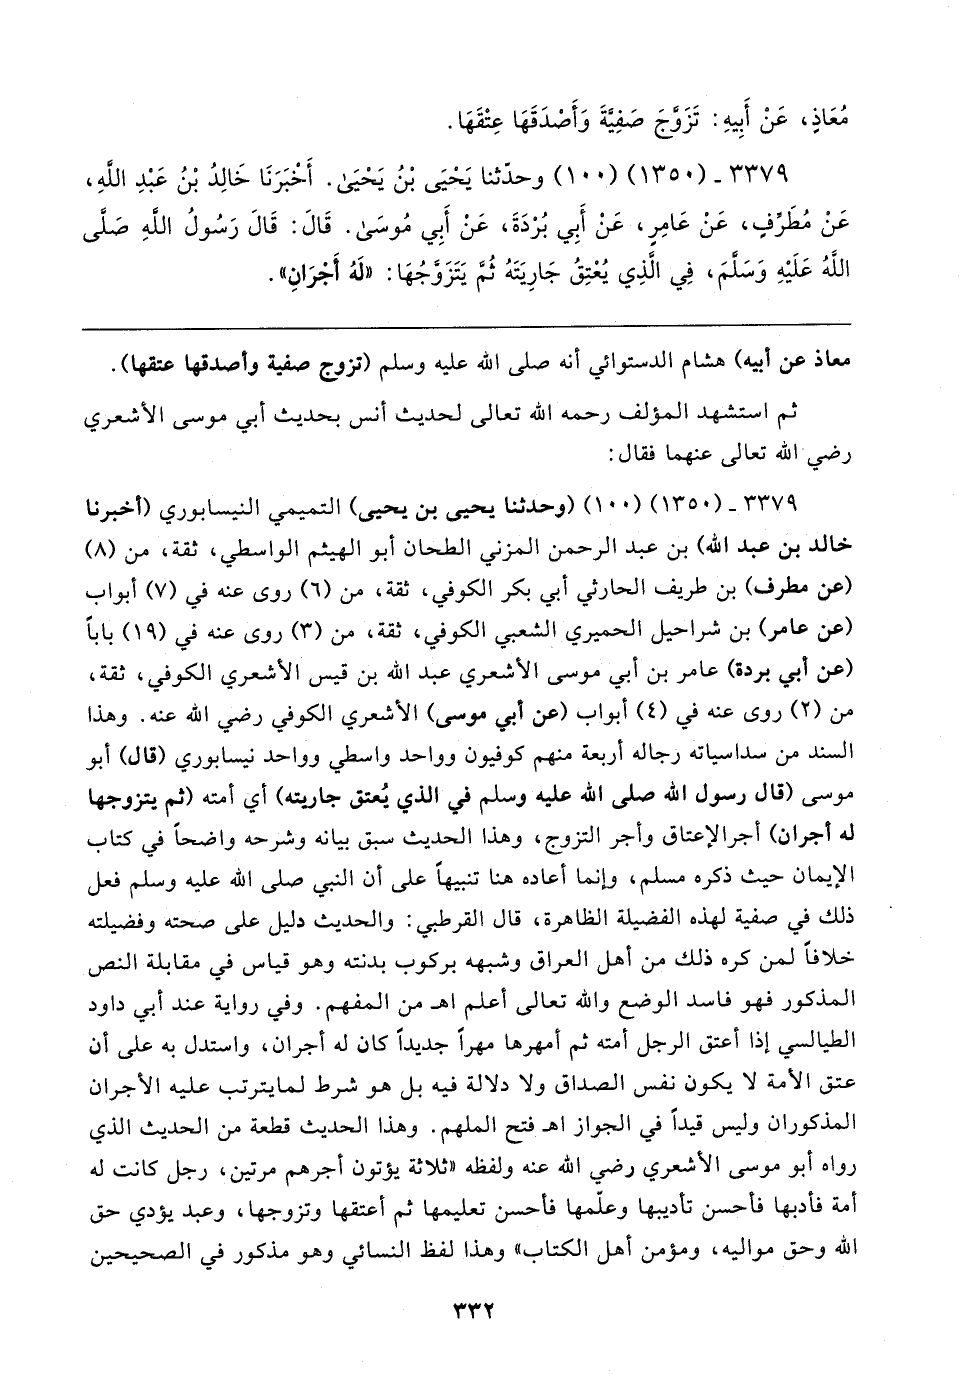 مُعَاذٍ، عَنْ أَبِيهِ: تَزَوَّجَ صَفِيَّةَ وَأَصْدَقَهَا عِتْقَهَا.
٣٣٧٩ - (١٣٥٠) (١٠٠) وحدّثنا يَحْيَى بْنُ يَحْيَىٰ. أَخْبَرَنَا خَالِدُ بْنُ عَبْدِ اللَّهِ،
عَنْ مُطَرِّفٍ، عَنْ عَامِرٍ، عَنْ أَبِي بُرْدَةَ، عَنْ أَبِي مُوسَىٰ. قَالَ: قَالَ رَسُولُ اللَّهِ صَلَّى
اللَّهُ عَلَيْهِ وَسَلَّمَ، فِي الَّذِي يُعْتِقُ جَارِيَتَهُ ثُمَّ يَتَزَوَّجُهَا: «لَهُ أَجْرَانِ».
معاذ عن أبيه) هشام الدستوائي أنه صلى الله عليه وسلم (تزوج صفية وأصدقها عتقها).
ثم استشهد المؤلف رحمه الله تعالى لحديث أنس بحديث أبي موسى الأشعري
رضي الله تعالى عنهما فقال:
٣٣٧٩ - (١٣٥٠) (١٠٠) (وحدثنا يحيى بن يحيى) التميمي النيسابوري (أخبرنا
خالد بن عبد الله) بن عبد الرحمن المزني الطحان أبو الهيثم الواسطي، ثقة، من (٨)
(عن مطرف) بن طريف الحارثي أبي بكر الكوفي، ثقة، من (٦) روى عنه في (٧) أبواب
(عن عامر) بن شراحيل الحميري الشعبي الكوفي، ثقة، من (٣) روى عنه في (١٩) باباً
(عن أبي بردة) عامر بن أبي موسى الأشعري عبد الله بن قيس الأشعري الكوفي، ثقة،
من (٢) روى عنه في (٤) أبواب (عن أبي موسى) الأشعري الكوفي رضي الله عنه. وهذا
السند من سداسياته رجاله أربعة منهم كوفيون وواحد واسطي وواحد نيسابوري (قال) أبو
موسى (قال رسول الله صلى الله عليه وسلم في الذي يُعتق جاريته) أي أمته (ثم يتزوجها
له أجران) أجرالإعتاق وأجر التزوج، وهذا الحديث سبق بيانه وشرحه واضحاً في كتاب
الإيمان حيث ذكره مسلم، وإنما أعاده هنا تنبيهاً على أن النبي صلى الله عليه وسلم فعل
ذلك في صفية لهذه الفضيلة الظاهرة، قال القرطبي: والحديث دليل على صحته وفضيلته
خلافاً لمن كره ذلك من أهل العراق وشبهه بركوب بدنته وهو قياس في مقابلة النص
المذكور فهو فاسد الوضع والله تعالى أعلم اهـ من المفهم. وفي رواية عند أبي داود
الطيالسي إذا أعتق الرجل أمته ثم أمهرها مهراً جديداً كان له أجران، واستدل به على أن
عتق الأمة لا يكون نفس الصداق ولا دلالة فيه بل هو شرط لمايترتب عليه الأجران
المذكوران وليس قيداً في الجواز اهـ فتح الملهم. وهذا الحديث قطعة من الحديث الذي
رواه أبو موسى الأشعري رضي الله عنه ولفظه «ثلاثة يؤتون أجرهم مرتين، رجل كانت له
أمة فأدبها فأحسن تأديبها وعلّمها فأحسن تعليمها ثم أعتقها وتزوجها، وعبد يؤدي حق
الله وحق مواليه، ومؤمن أهل الكتاب» وهذا لفظ النسائي وهو مذكور في الصحيحين
٣٣٢